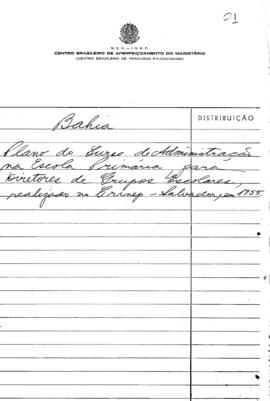 21
M.E.C. - I.N.E.P.
CENTRO BRASILEIRO DE APERFEIÇOAMENTO DO MAGISTÉRIO
(CENTRO BRASILEIRO DE PESQUISAS EDUCACIONAIS)
DISTRIBUIÇÃO
Bahia
Plano do Curso de Administração
na Escola Primária para
Diretores de Grupos Escolares,
realizado no Crinep - Salvador, em 1955.